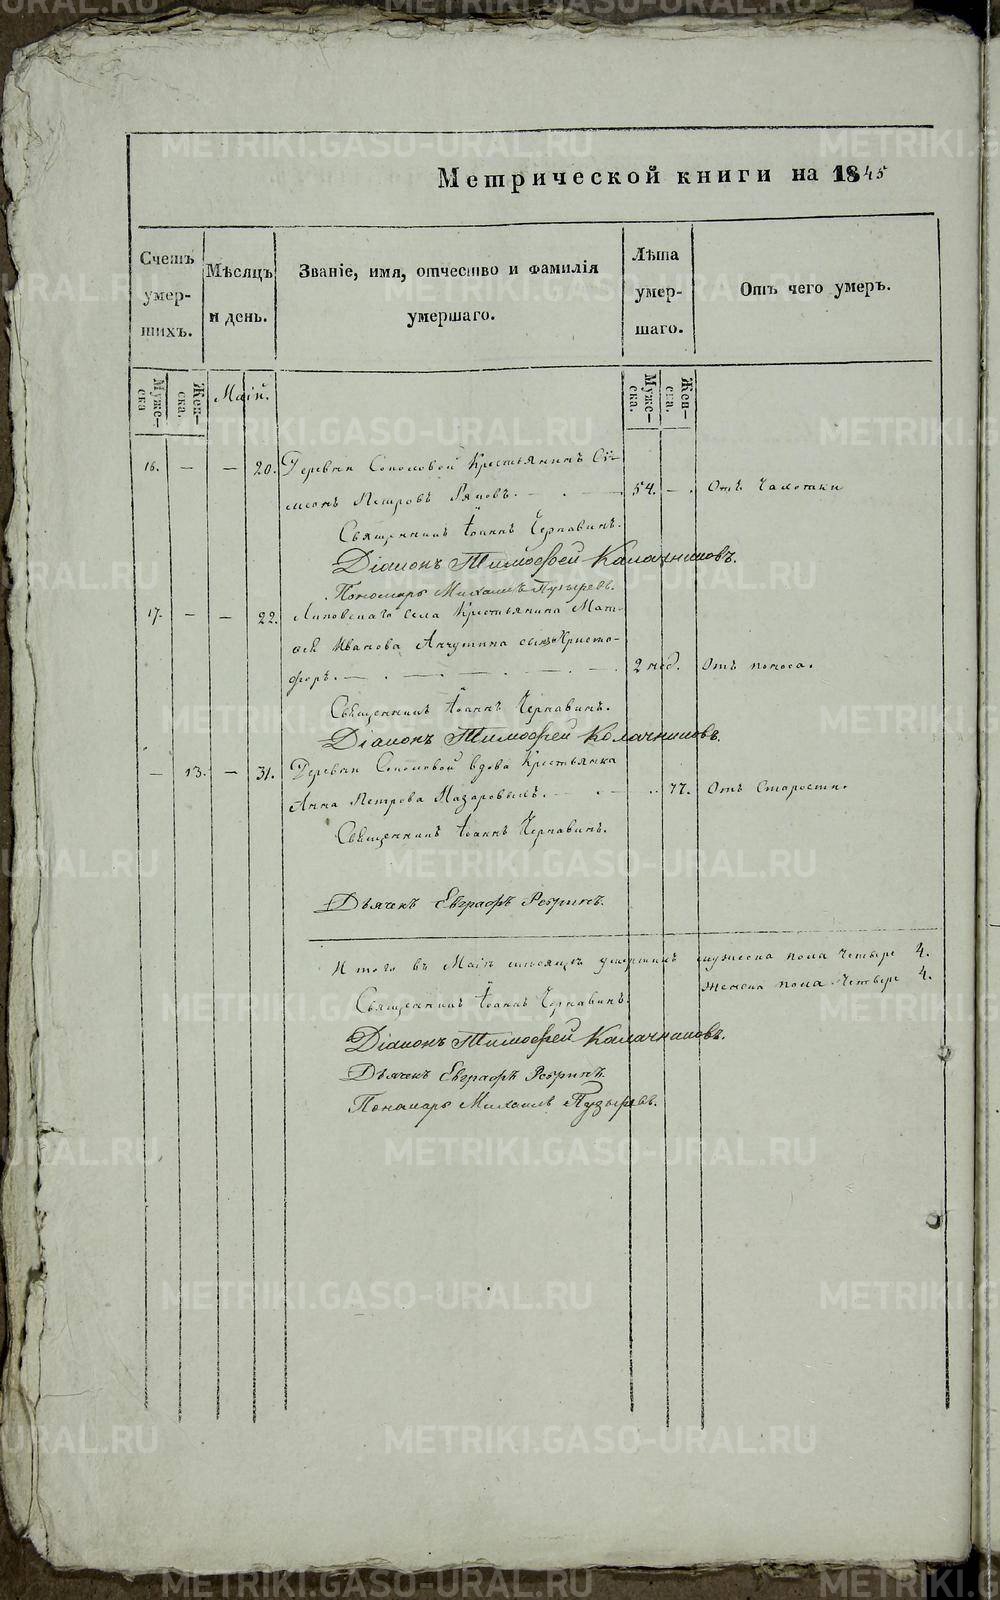 Метрической книги на 1845
Счетъ умер- шихъ.
Мѣсяцъ и день.
Званіе, имя, отчество и фамилія умершаго.
Лѣта умер- шаго.
Отъ чего умеръ.
Муже- ска
Жен- ска.
Маій.
Муже- ска.
Жен- ска.
16. — — 20. Деревни Соколовой Крестьянинъ Си-
меонъ Петровъ 54. — . Отъ Чахотки
Священникъ Іоаннъ Чернавинъ.
Діаконъ Тимоѳей Калачниковъ.
Пономарь Михаилъ Пузыревъ.
17. — — 22. Липовскаго села Крестьянина Мат-
ѳея Иванова Анчутина сынъ Христо-
форъ. — . — . — 2 нед. Отъ поноса.
Священникъ Іоаннъ Чернавинъ.
Діаконъ Тимоѳей Калачниковъ.
— 13. — 31. Деревни Соколовой вдова Крестьянка
Анна Петрова Назаровыхъ. — . — 77. Отъ Старости.
Священникъ Іоаннъ Чернавинъ.
Дьячекъ Евграфъ Ребринъ.
Итого въ Маіѣ мѣсяцѣ умершихъ мужеска пола Четыре 4.
Женска пола Четыре 4.
Священникъ Іоаннъ Чернавинъ.
Діаконъ Тимоѳей Калачниковъ.
Дьячекъ Евграфъ Ребринъ.
Пономарь Михаилъ Пузыревъ.
METRIKI.GASO-URAL.RU